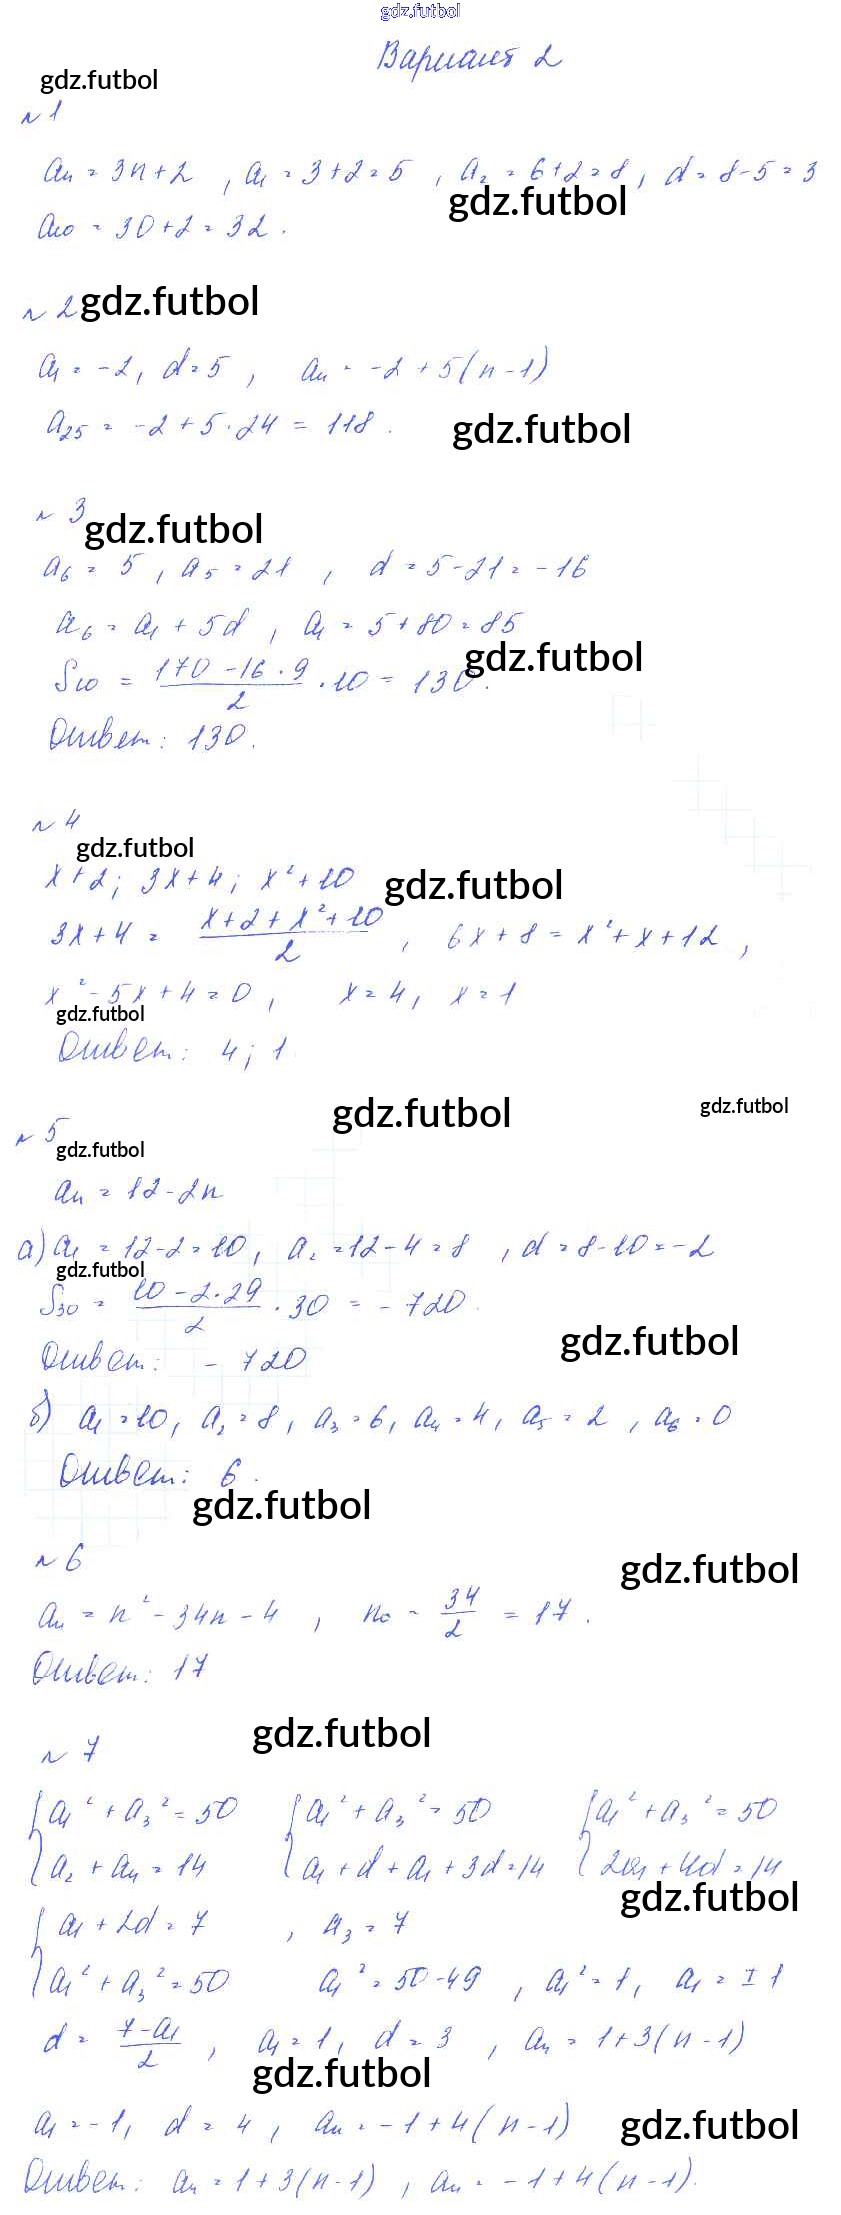 gdz.futbol
Вариант 2
gdz.futbol
№ 1
aₙ = 3n + 2 , a₁ = 3 + 2 = 5 , a₂ = 6 + 2 = 8 , d = 8 - 5 = 3
gdz.futbol
a₁₀ = 30 + 2 = 32 .
№ 2 gdz.futbol
a₁ = -2 , d = 5 , aₙ = -2 + 5(n - 1)
a₂₅ = -2 + 5 · 24 = 118 .
gdz.futbol
№ 3
gdz.futbol
a₆ = 5 , a₅ = 21 , d = 5 - 21 = -16
a₆ = a₁ + 5d , a₁ = 5 + 80 = 85
gdz.futbol
S₁₀ = (170 - 16 · 9)/2 · 10 = 130 .
Ответ: 130 .
№ 4
gdz.futbol
x + 2 ; 3x + 4 ; x² + 10
gdz.futbol
3x + 4 = (x + 2 + x² + 10)/2 , 6x + 8 = x² + x + 12 ,
x² - 5x + 4 = 0 , x = 4 , x = 1
gdz.futbol
Ответ: 4 ; 1
gdz.futbol
gdz.futbol
№ 5
gdz.futbol
aₙ = 12 - 2n
а) a₁ = 12 - 2 = 10 , a₂ = 12 - 4 = 8 , d = 8 - 10 = -2
gdz.futbol
S₃₀ = (10 - 2 · 29)/2 · 30 = - 720 .
gdz.futbol
Ответ: - 720
б) a₁ = 10 , a₂ = 8 , a₃ = 6 , a₄ = 4 , a₅ = 2 , a₆ = 0
Ответ: 6 .
gdz.futbol
№ 6
gdz.futbol
aₙ = n² - 34n - 4 , n₀ = 34/2 = 17 .
Ответ: 17
gdz.futbol
№ 7
{ a₁² + a₃² = 50 { a₁² + a₃² = 50 { a₁² + a₃² = 50
a₂ + a₄ = 14 a₁ + d + a₁ + 3d = 14 2a₁ + 4d = 14
gdz.futbol
{ a₁ + 2d = 7 , a₃ = 7
a₁² + a₃² = 50 a₁² = 50 - 49 , a₁² = 1 , a₁ = ± 1
d = (7 - a₁)/2 , a₁ = 1 , d = 3 , aₙ = 1 + 3(n - 1)
gdz.futbol
a₁ = -1 , d = 4 , aₙ = -1 + 4(n - 1)
gdz.futbol
Ответ: aₙ = 1 + 3(n - 1) , aₙ = -1 + 4(n - 1).